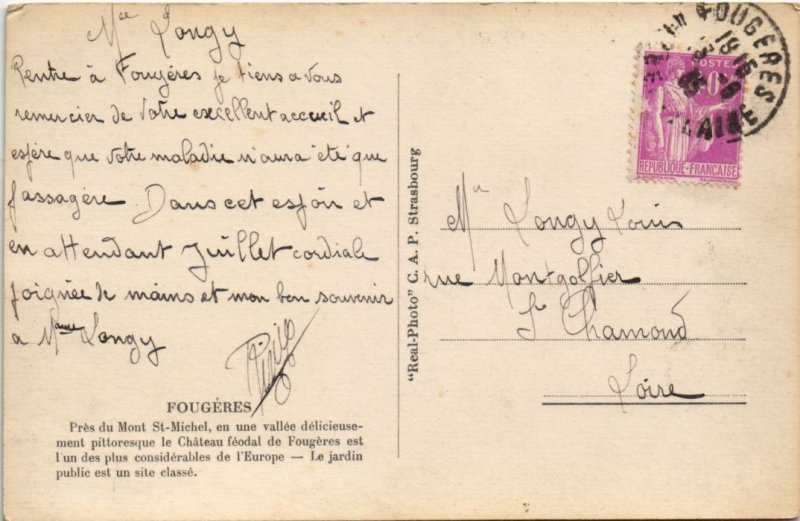 Mr Longy
Rentré à Fougères je tiens a vous
remercier de votre excellent accueil et
espère que votre maladie n'aura été que
passagère. Dans cet espoir et
en attendant Juillet cordiale
poignée de mains et mon bon souvenir
a Mme Longy
FOUGÈRES
Près du Mont St-Michel, en une vallée délicieuse-
ment pittoresque le Château féodal de Fougères est
l'un des plus considérables de l'Europe — Le jardin
public est un site classé.
"Real-Photo" C. A. P. Strasbourg
FOUGERES
POSTES
REPUBLIQUE·FRANÇAISE
Mr Longy Louis
rue Montgolfier
St Chamond
Loire